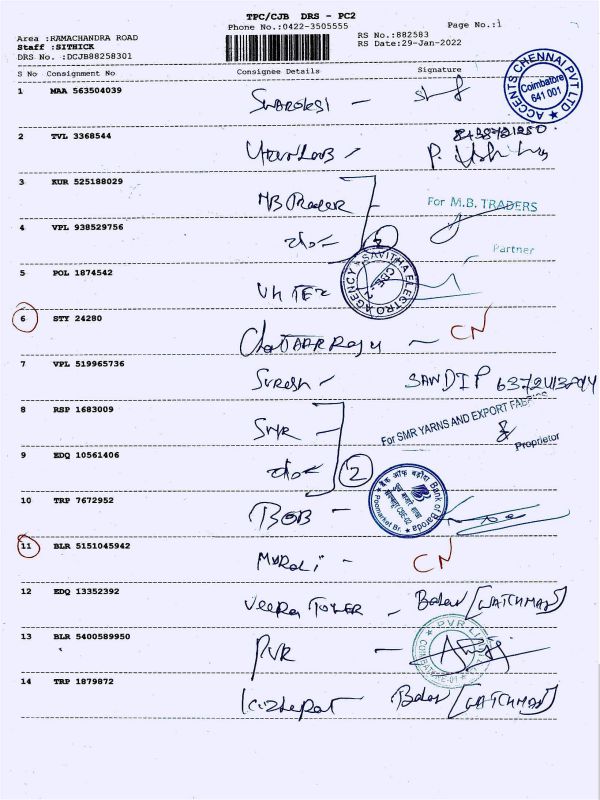 TPC/CJB DRS - PC2
Phone No.:0422-3505555
Page No.:1
Area :RAMACHANDRA ROAD
Staff :SITHICK
DRS No. :DCJB88258301
RS No.:882583
RS Date:29-Jan-2022
S No Consignment No Consignee Details Signature
ACCENTS CHENNAI PVT LTD
Coimbatore
641 001
1 MAA 563504039
2 TVL 3368544
3 KUR 525188029
MB Trader
For M.B. TRADERS
4 VPL 938529756
Partner
5 POL 1874542
SAVITHA ELECTRO AGENCY
CBE-2
6 STY 24280
CN
7 VPL 519965736
Suresh - SANDIP
8 RSP 1683009
SMR -
For SMR YARNS AND EXPORT FABRICS
Proprietor
9 EDQ 10561406
2
10 TRP 7672952
BOB -
बैंक ऑफ बड़ौदा Bank of Baroda
Poomarket Br.
CBE-02
11 BLR 5151045942
Murali - CN
12 EDQ 13352392
Veera Tower - Balan [WATCHMAN]
13 BLR 5400589950
PVR -
COIMBATORE-01
14 TRP 1879872
Balan [WATCHMAN]